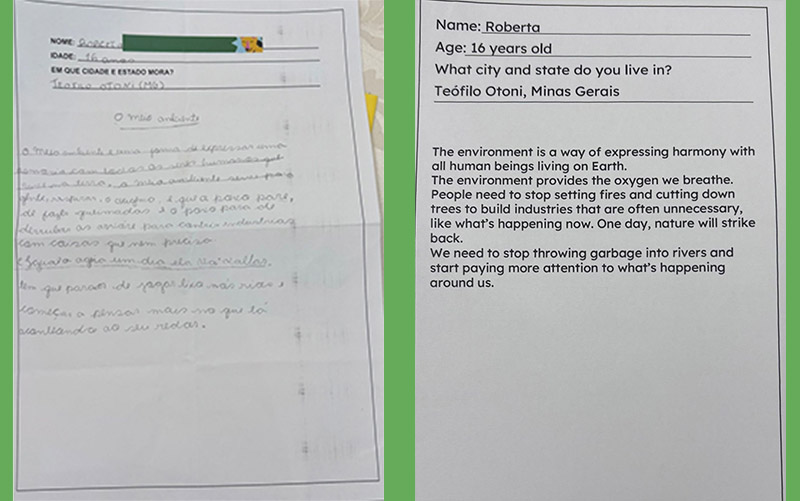 NOME: ROBERTA
IDADE: 16 anos
EM QUE CIDADE E ESTADO MORA?
TEOFILO OTONI (MG)
O meio ambiente
O meio ambiente é uma forma de expressar uma
com todos os seres humanos que
na terra, o meio ambiente serve para
gente, respirar, o oxigênio, é que o povo pare,
de fazer queimadas e o povo para de
derrubar as arvore para indústrias
com coisas que nem precisa
um dia ela
tem que parar de jogar lixo nos rios e
começar a pensar mais no que tá
acontecendo ao seu redor.
Name: Roberta
Age: 16 years old
What city and state do you live in?
Teófilo Otoni, Minas Gerais
The environment is a way of expressing harmony with
all human beings living on Earth.
The environment provides the oxygen we breathe.
People need to stop setting fires and cutting down
trees to build industries that are often unnecessary,
like what's happening now. One day, nature will strike
back.
We need to stop throwing garbage into rivers and
start paying more attention to what's happening
around us.